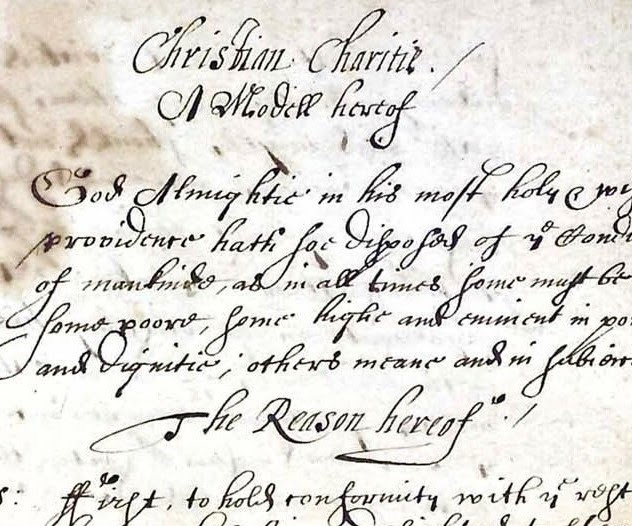 Christian Charitie.
A Modell hereof
God Almightie in his most holy &
providence hath soe disposed of yͤ Condi
of mankinde, as in all times some must be
some poore, some highe and eminent in po
and dignitie; others meane and in subiec
The Reason hereof.
ffirst, to hold conformity with yͤ rest